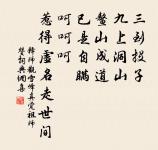 三到投子
九上洞山
鰲山成道
已是自瞞
呵呵呵
惹得虛名走世間
釋師觀雪峰真覺祖師
贊詞典網集